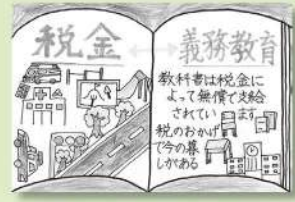 税金
義務教育
教科書は税金に
よって無償で支給
されてい ます
税のおかげ
で今の暮
しがある